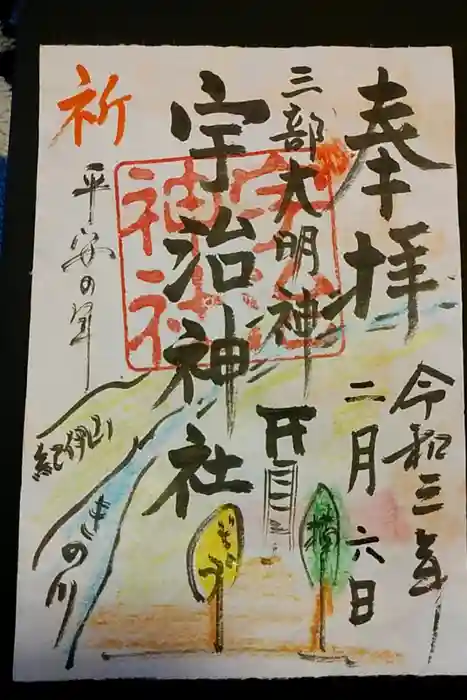 奉拝
令和三年
二月六日
三部大明神
宇治神社
宇治
神社
祈
平安の年
紀伊山
きの川